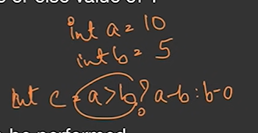 or else value of
int a = 10
int b = 5
int c = a>b? a-b : b-a
be performed